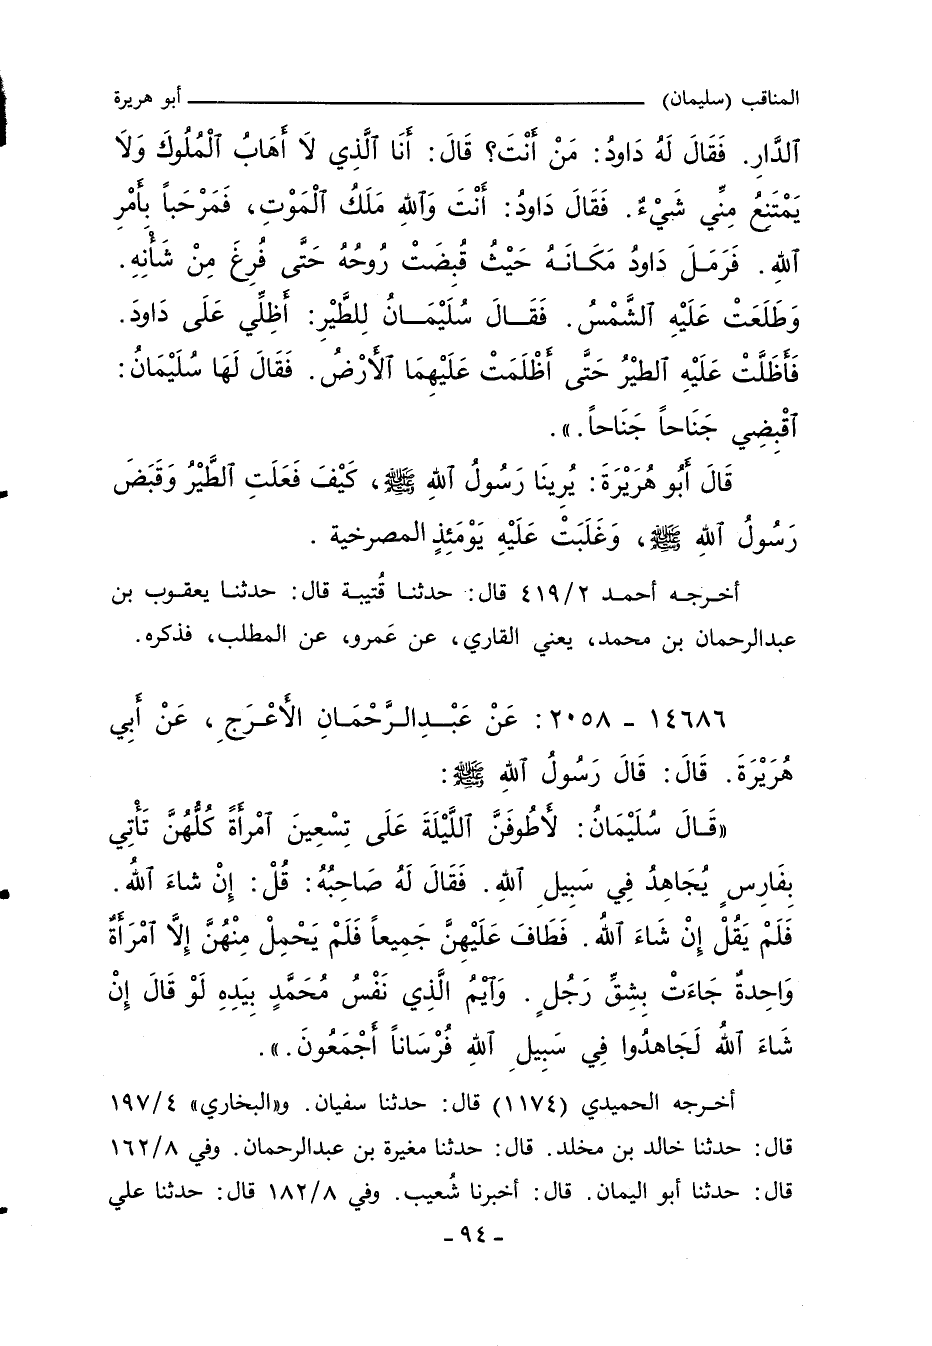 المناقب (سليمان) ــــــــــــــــــــ أبو هريرة
ٱلدَّارِ. فَقَالَ لَهُ دَاودُ: مَنْ أَنْتَ؟ قَالَ: أَنَا ٱلَّذِي لَا أَهَابُ ٱلْمُلُوكَ وَلَا
يَمْتَنِعُ مِنِّي شَيْءٌ. فَقَالَ دَاودُ: أَنْتَ وَٱللهِ مَلَكُ ٱلْمَوْتِ، فَمَرْحَباً بِأَمْرِ
ٱللهِ. فَرَمَلَ دَاودُ مَكَانَهُ حَيْثُ قُبِضَتْ رُوحُهُ حَتَّى فُرِغَ مِنْ شَأْنِهِ.
وَطَلَعَتْ عَلَيْهِ ٱلشَّمْسُ. فَقَالَ سُلَيْمَانُ لِلطَّيْرِ: أَظِلِّي عَلَى دَاودَ.
فَأَظَلَّتْ عَلَيْهِ ٱلطيْرُ حَتَّى أَظْلَمَتْ عَلَيْهِمَا ٱلْأَرْضُ. فَقَالَ لَهَا سُلَيْمَانُ:
ٱقْبِضِي جَنَاحاً جَنَاحاً.».
قَالَ أَبُو هُرَيْرَةَ: يُرِينَا رَسُولُ ٱللهِ ﷺ، كَيْفَ فَعَلَتِ ٱلطَّيْرُ وَقَبَضَ
رَسُولُ ٱللهِ ﷺ، وَغَلَبَتْ عَلَيْهِ يَوْمَئِذٍ المصرخية .
أخرجه أحمد ٤١٩/٢ قال: حدثنا قُتيبة قال: حدثنا يعقوب بن
عبدالرحمان بن محمد، يعني القاري، عن عَمرو، عن المطلب، فذكره.
١٤٦٨٦ - ٢٠٥٨: عَنْ عَبْدِالرَّحْمَانِ الأَعْرَجِ، عَنْ أَبِي
هُرَيْرَةَ. قَالَ: قَالَ رَسُولُ ٱللهِ ﷺ:
«قَالَ سُلَيْمَانُ: لَأَطُوفَنَّ ٱللَّيْلَةَ عَلَى تِسْعِينَ ٱمْرأَةً كُلُّهُنَّ تَأْتِي
بِفَارِسٍ يُجَاهِدُ فِي سَبِيلِ ٱللهِ. فَقَالَ لَهُ صَاحِبُهُ: قُلْ: إِنْ شاءَ ٱللهُ.
فَلَمْ يَقُلْ إِنْ شَاءَ ٱللهُ. فَطَافَ عَلَيْهِنَّ جَمِيعاً فَلَمْ يَحْمِلْ مِنْهُنَّ إِلَّا ٱمْرَأَةٌ
وَاحِدةٌ جَاءَتْ بِشِقِّ رَجُلٍ. وَٱيْمُ الَّذِي نَفْسُ مُحَمَّدٍ بِيَدِهِ لَوْ قَالَ إِنْ
شَاءَ ٱللهُ لَجَاهدُوا فِي سَبِيلِ ٱللهِ فُرْسَاناً أَجْمَعُونَ.».
أخرجه الحميدي (١١٧٤) قال: حدثنا سفيان. و«البخاري» ١٩٧/٤
قال: حدثنا خالد بن مخلد. قال: حدثنا مغيرة بن عبدالرحمان. وفي ١٦٢/٨
قال: حدثنا أبو اليمان. قال: أخبرنا شُعيب. وفي ١٨٢/٨ قال: حدثنا علي
- ٩٤ -